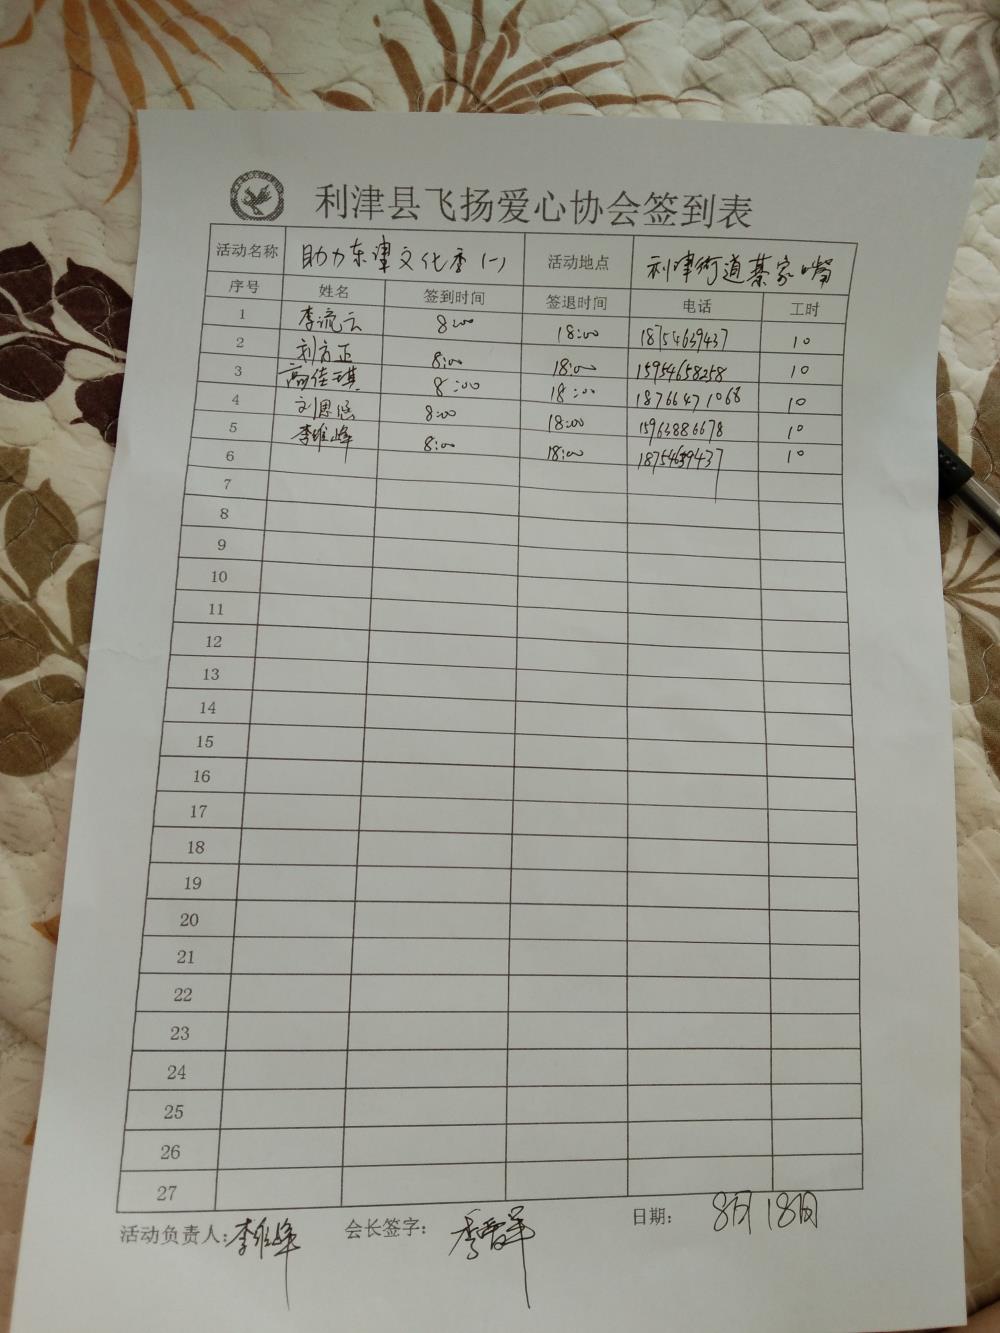 利津县飞扬爱心协会签到表
活动名称 助力东津文化季(一) 活动地点 利津街道綦家嘴
序号 姓名 签到时间 签退时间 电话 工时
1 李流云 8:00 18:00 18754639437 10
2 刘方正 8:00 18:00 15954658258 10
3 高佳琪 8:00 18:00 18766471068 10
4 刘思愻 8:00 18:00 15963886678 10
5 李维峰 8:00 18:00 18754639437 10
6
7
8
9
10
11
12
13
14
15
16
17
18
19
20
21
22
23
24
25
26
27
活动负责人:李维峰 会长签字: 日期: 8月18日